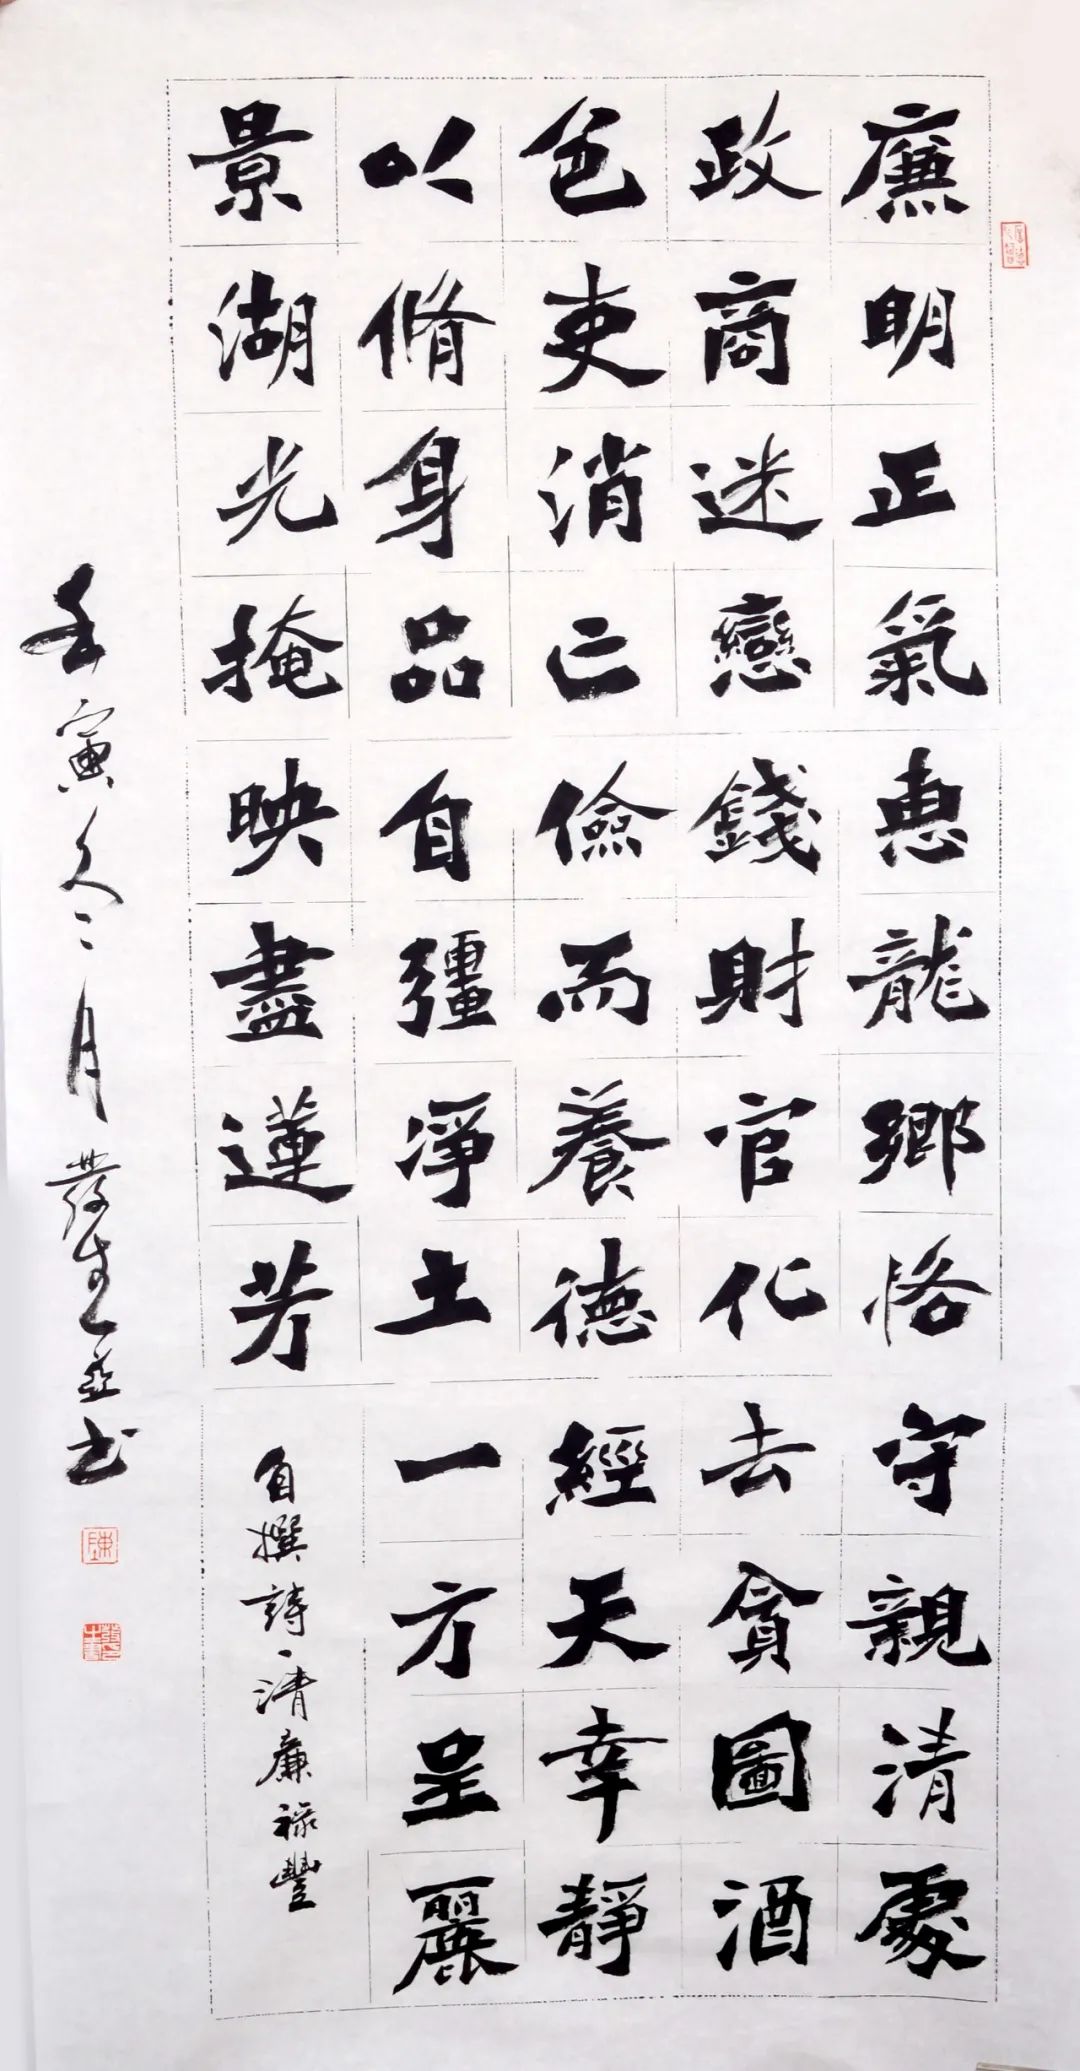 廉明正氣惠龍鄉恪守親清處
政商迷戀錢財官化去貪圖酒
色吏消亡儉而養德經天幸靜
以脩身品自彊淨土一方呈麗
景湖光掩映盡蓮芳
自撰詩清廉祿豐
壬寅久二月發生並书
陳